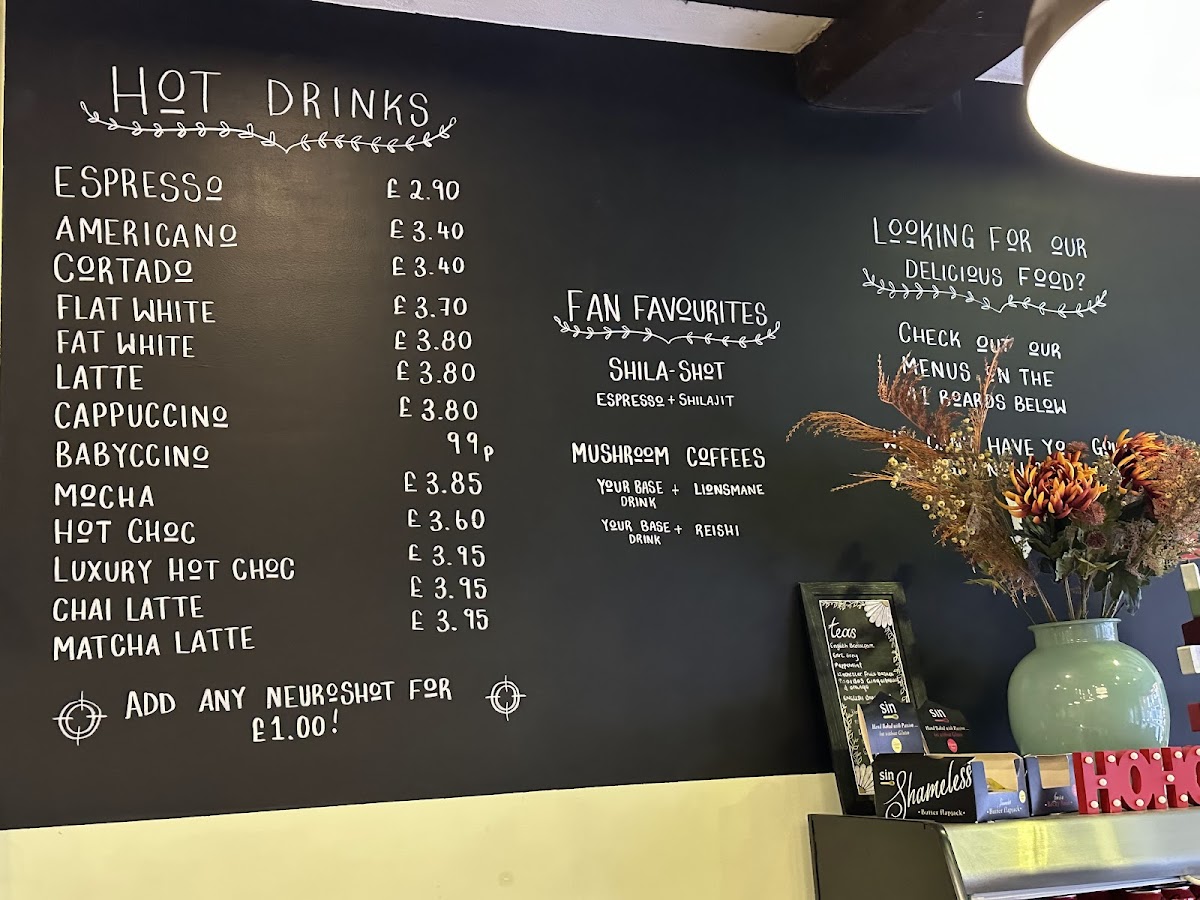 HOT DRINKS
ESPRESSO £2.90
AMERICANO £3.40
CORTADO £3.40
FLAT WHITE £3.70
FAT WHITE £3.80
LATTE £3.80
CAPPUCCINO £3.80
BABYCCINO 99p
MOCHA £3.85
HOT CHOC £3.60
LUXURY HOT CHOC £3.95
CHAI LATTE £3.95
MATCHA LATTE £3.95
ADD ANY NEUROSHOT FOR
£1.00!
FAN FAVOURITES
SHILA-SHOT
ESPRESSO + SHILAJIT
MUSHROOM COFFEES
YOUR BASE DRINK + LIONSMANE
YOUR BASE DRINK + REISHI
LOOKING FOR OUR
DELICIOUS FOOD?
CHECK OUT OUR
MENUS ON THE
BOARDS BELOW
HAVE
teas
English Breakfast
Earl Grey
Peppermint
sin
Hand Baked with Passion
sin
Hand Baked with Passion
sin
Shameless
Butter flapjack
Butter flapjack
HOHO